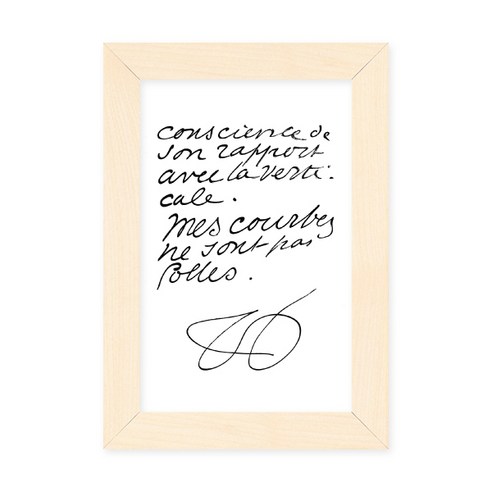 conscience de
son rapport
avec la verti-
cale.
Mes courbes
ne sont pas
folles.